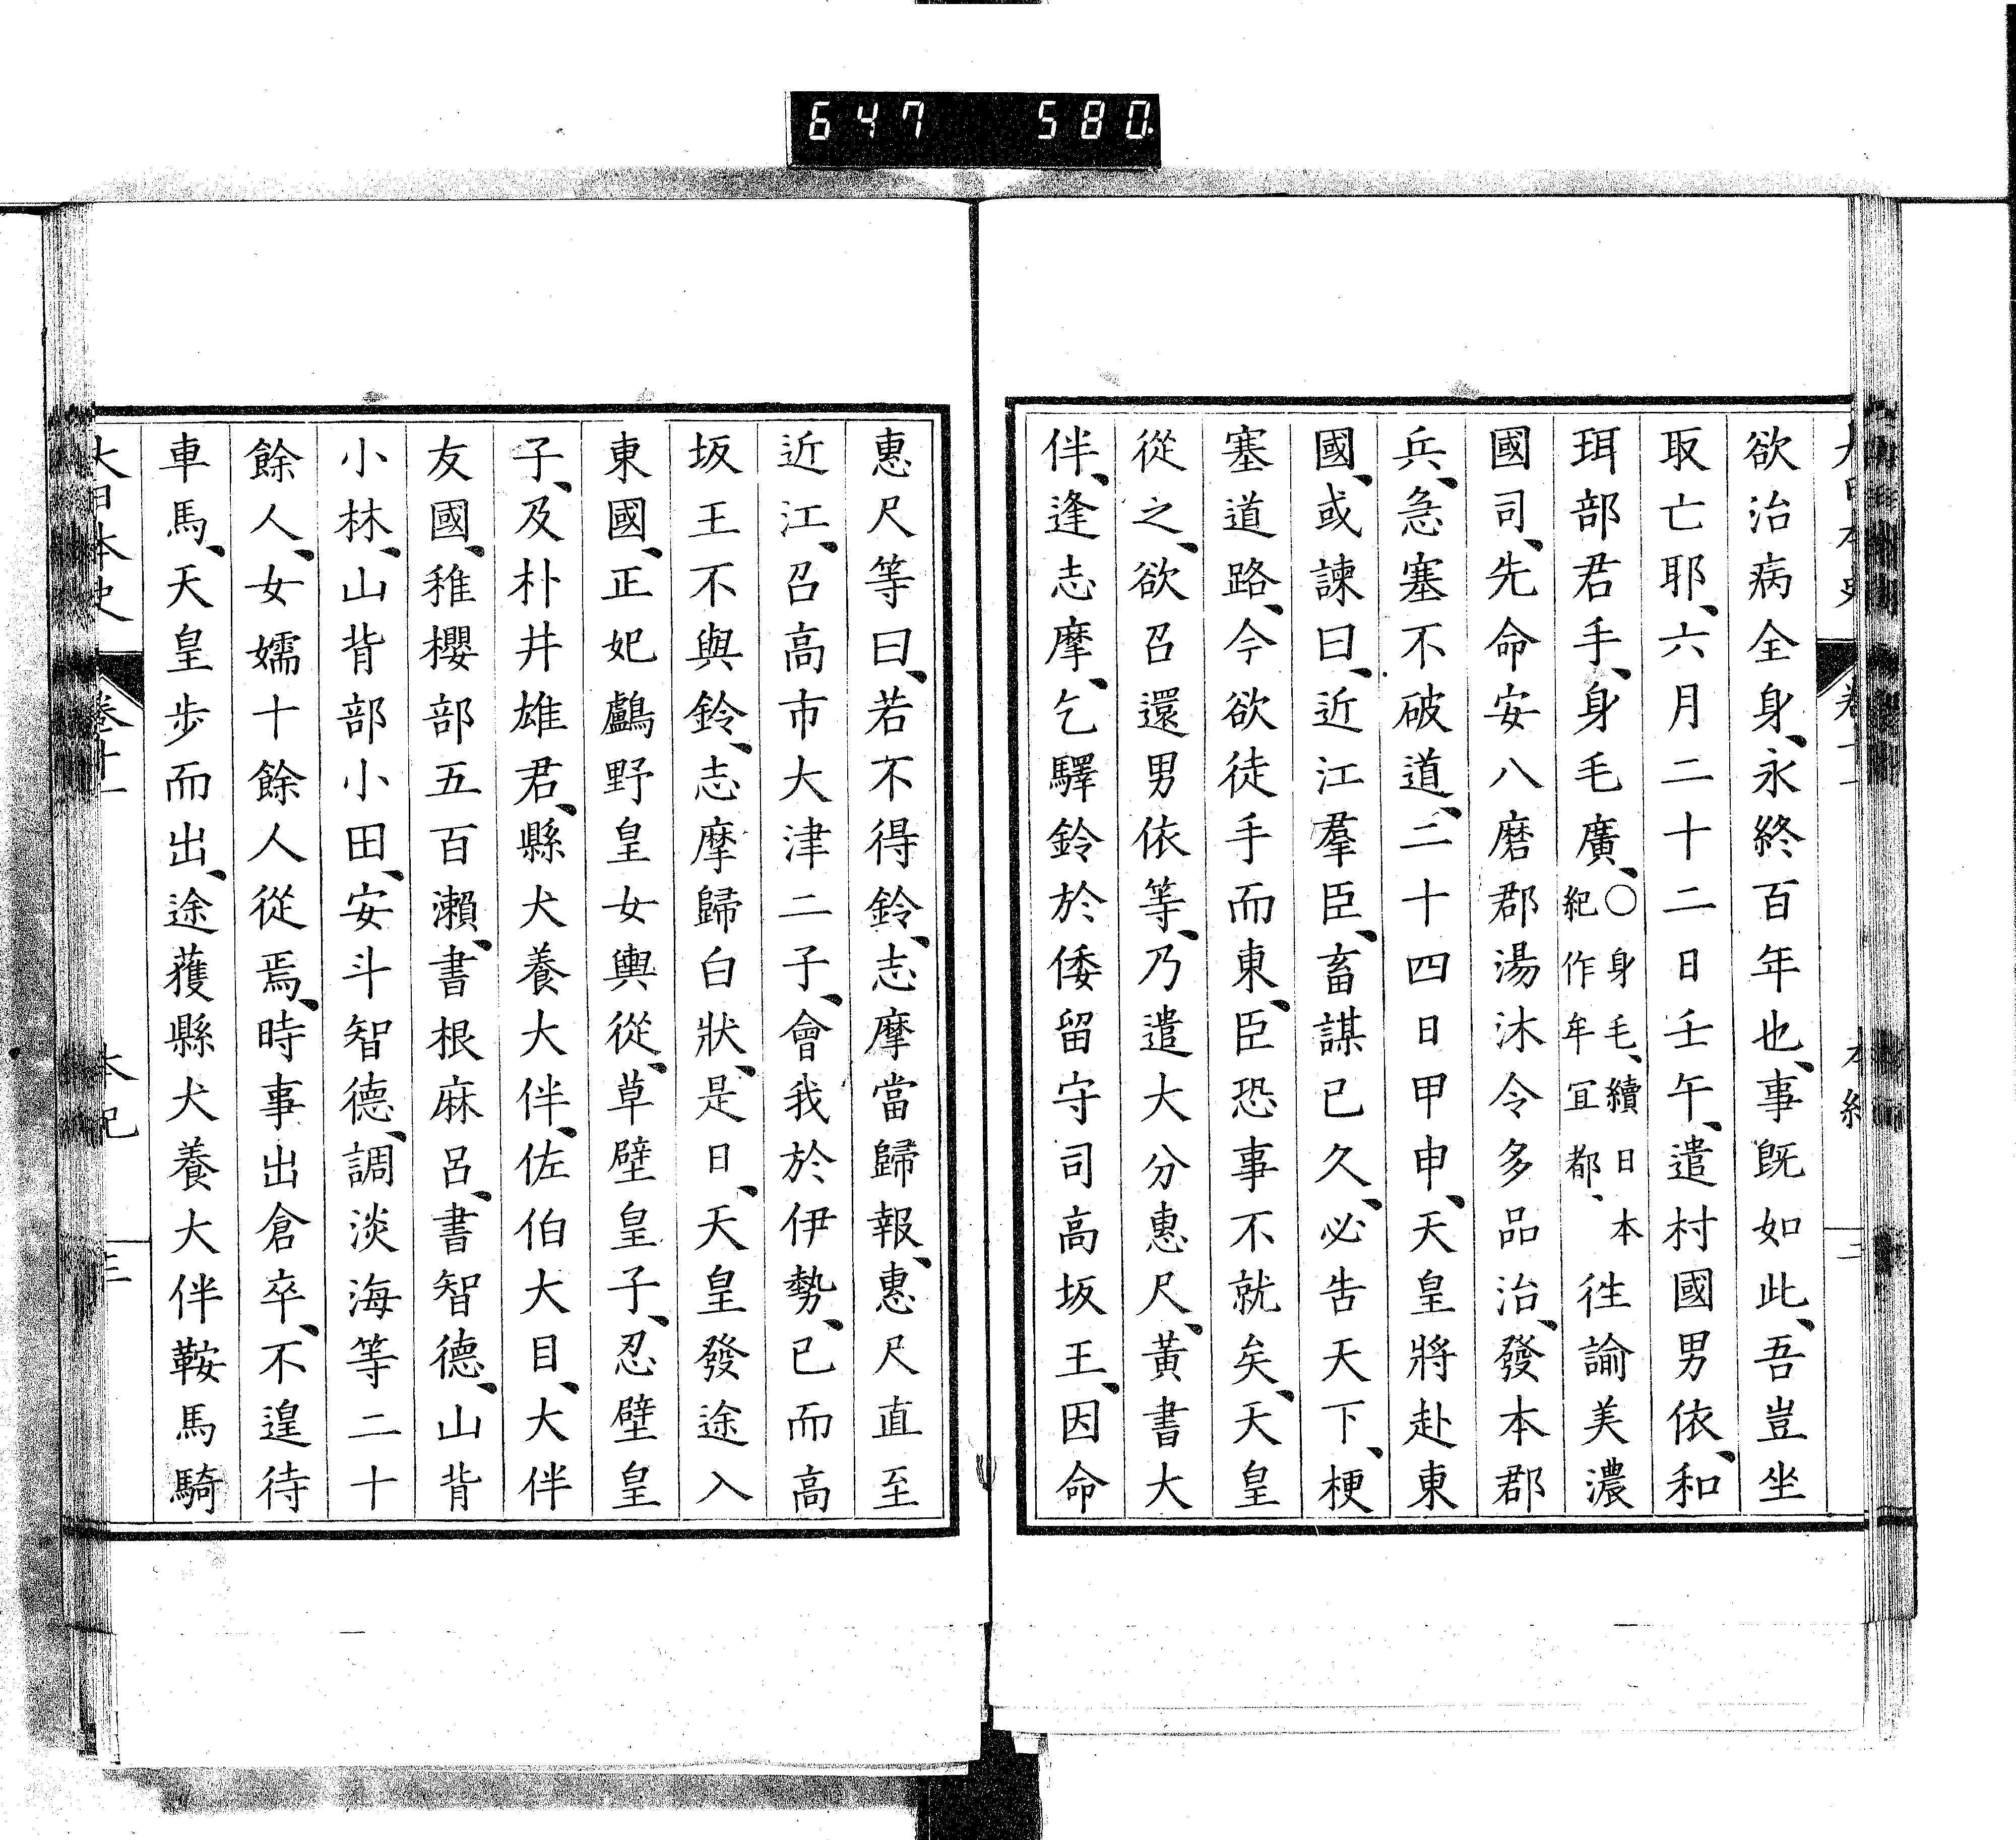 647 580.
欲治病全身、永終百年也、事既如此、吾豈坐
取亡耶、六月二十二日壬午、遣村國男依、和
珥部君手、身毛廣、〇身毛、續日本紀作牟宜都、往諭美濃
國司、先命安八磨郡湯沐令多品治、發本郡
兵、急塞不破道、二十四日甲申、天皇將赴東
國、或諫曰、近江羣臣、畜謀已久、必告天下、梗
塞道路、今欲徒手而東、臣恐事不就矣、天皇
從之、欲召還男依等、乃遣大分惠尺、黃書大
伴、逢志摩、乞驛鈴於倭留守司高坂王、因命
惠尺等曰、若不得鈴、志摩當歸報、惠尺直至
近江、召高市大津二子、會我於伊勢、已而高
坂王不與鈴、志摩歸白狀、是日、天皇發途入
東國、正妃鸕野皇女輿從、草壁皇子、忍壁皇
子、及朴井雄君、縣犬養大伴、佐伯大目、大伴
友國、稚櫻部五百瀨、書根麻呂、書智德、山背
小林、山背部小田、安斗智德、調淡海等二十
餘人、女孺十餘人從焉、時事出倉卒、不遑待
車馬、天皇步而出、途獲縣犬養大伴鞍馬騎
大日本史 卷十一 本紀 三